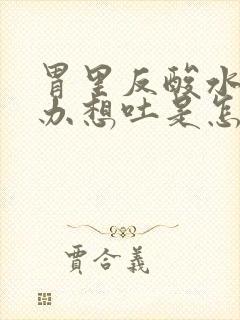 胃里反酸水
办想吐是怎
賈合義